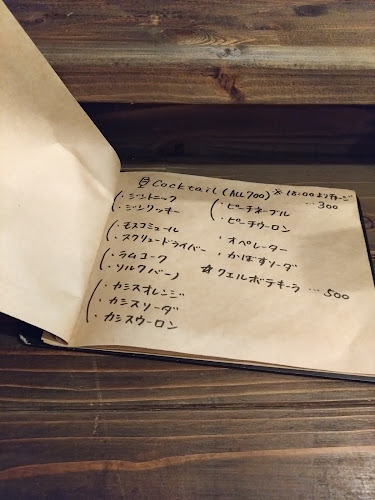 Cocktail (ALL 700) ※18:00よりチャージ …300
・ジントニック
・ジンリッキー
・モスコミュール
・スクリュードライバー
・ラムコーク
・ソルクバーノ
・カシスオレンジ
・カシスソーダ
・カシスウーロン
・ピーチネーブル
・ピーチウーロン
・オペレーター
・かぼすソーダ
☆クエルボテキーラ …500